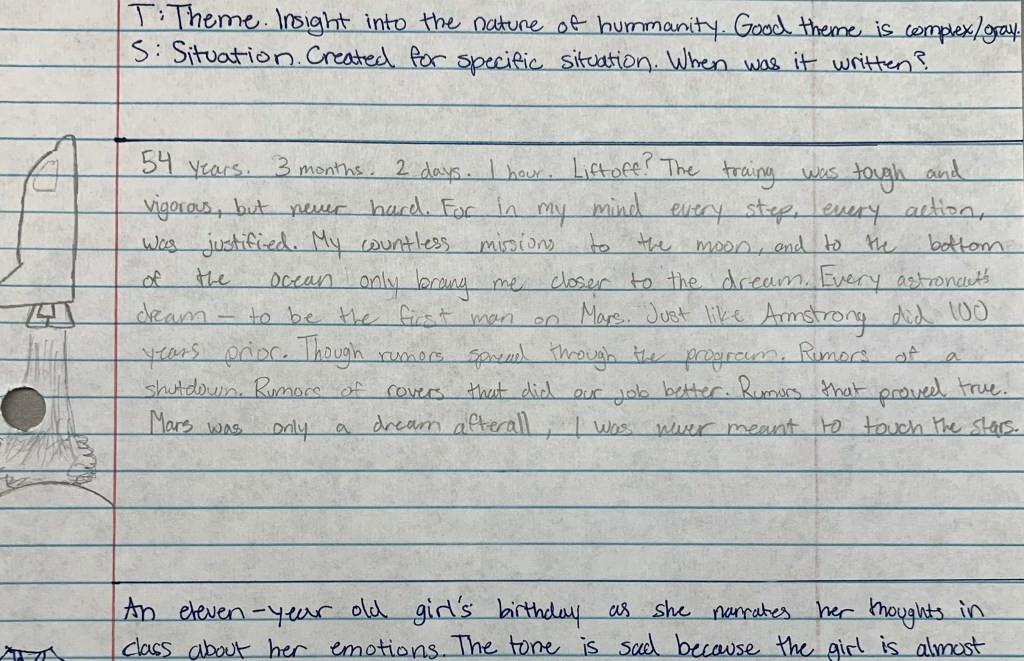 T: Theme. Insight into the nature of hummanity. Good theme is complex/gray.
S: Situation. Created for specific situation. When was it written?
54 years. 3 months. 2 days. 1 hour. Liftoff? The traing was tough and
vigorous, but never hard. For in my mind every step, every action,
was justified. My countless missions to the moon, and to the bottom
of the ocean only brang me closer to the dream. Every astronauts
dream – to be the first man on Mars. Just like Armstrong did 100
years prior. Though rumors spread through the program. Rumors of a
shutdown. Rumors of rovers that did our job better. Rumors that proved true.
Mars was only a dream afterall, I was never meant to touch the stars.
An eleven-year old girl's birthday as she narrates her thoughts in
class about her emotions. The tone is sad because the girl is almost